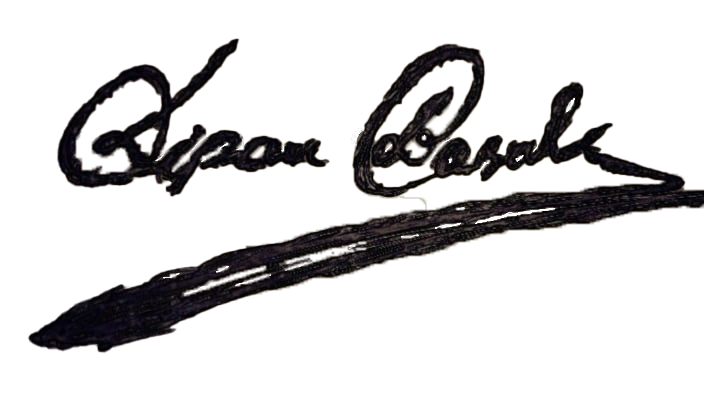 Ripan Basak